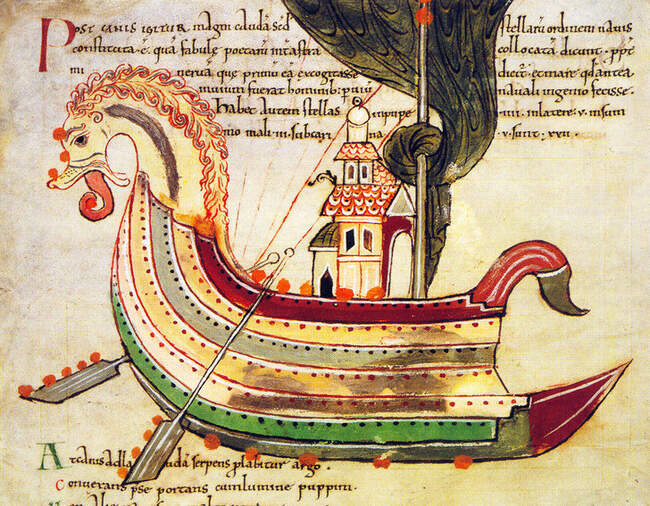 Post canis igitur magni caudā stellarū ordinem nauis
constituta .ē. quā fabulę poetarū int astra collocatā dicunt. ppt
mineruā que primū eā excogitasse dicit. et mare qd antea
inuium fuerat hominib: puiū nauali ingenio fecisse.
Habet autem stellas inpuppe .iiii. inlatere .v. insum
mo mali .iii. subcarina .v. sunt .xxii.
At canis ad caudā serpens plabitur argo.
conuersam pse portans cumlumine puppim.